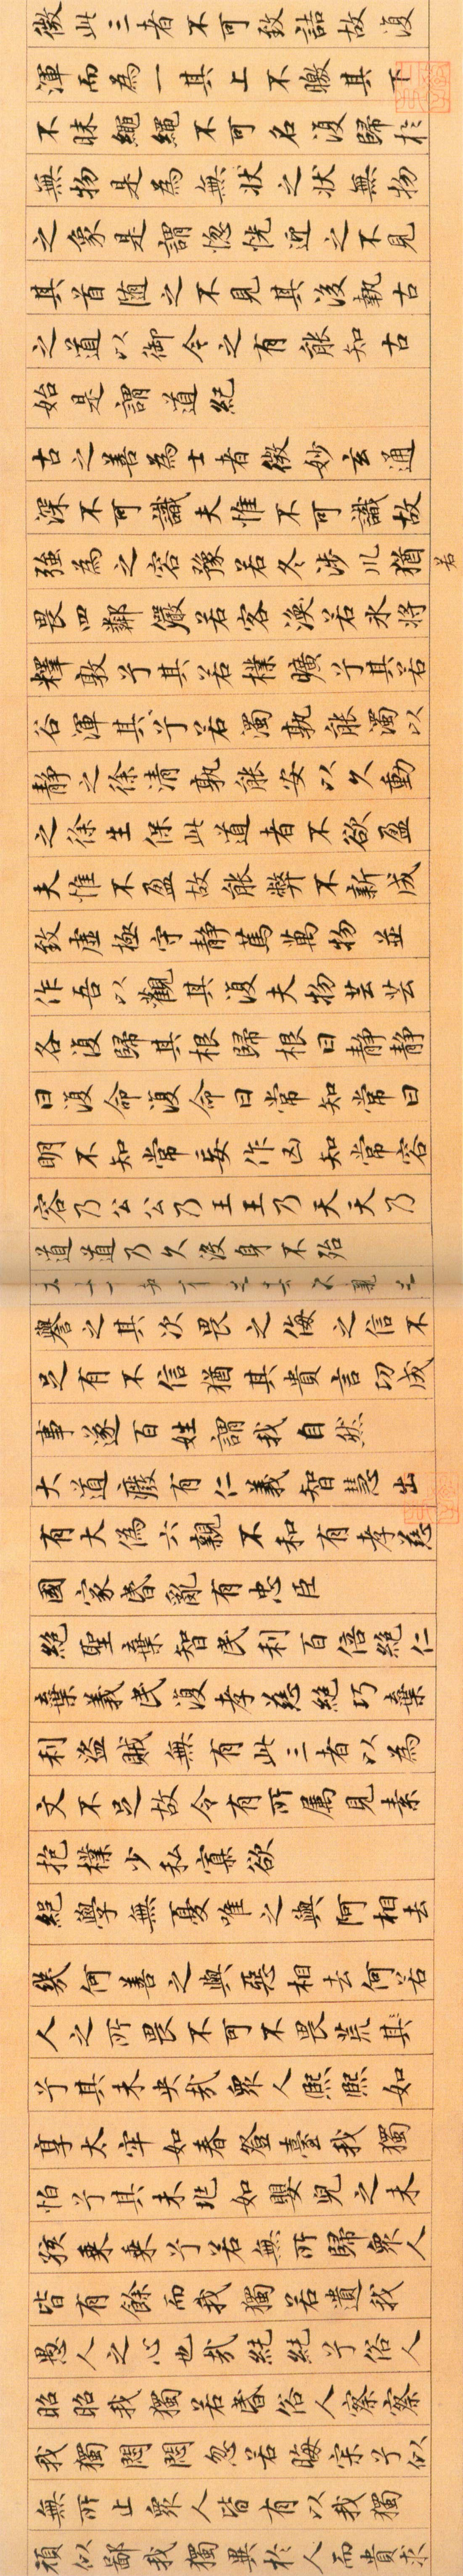 微此三者不可致詰故復
渾而為一其上不皦其下
不昧繩繩不可名復歸於
無物是為無狀之狀無物
之象是謂惚恍迎之不見
其首隨之不見其後執古
之道以御今之有能知古
始是謂道紀
古之善為士者微妙玄通
深不可識夫惟不可識故
強為之容豫若冬涉川猶
若
畏四鄰儼若客渙若氷將
釋敦兮其若樸曠兮其若
谷渾其兮若濁孰能濁以
靜之徐清孰能安以久動
之徐生保此道者不欲盈
夫惟不盈故能弊不新成
致虛極守靜篤萬物並
作吾以觀其復夫物芸芸
各復歸其根歸根曰靜靜
曰復命復命曰常知常曰
明不知常妄作凶知常容
容乃公公乃王王乃天天乃
道道乃久沒身不殆
譽之其次畏之侮之信不
足有不信猶其貴言功成
事遂百姓謂我自然
大道廢有仁義智慧出
有大偽六親不和有孝慈
國家昏亂有忠臣
絕聖棄智民利百倍絕仁
棄義民復孝慈絕巧棄
利盜賊無有此三者以為
文不足故令有所屬見素
抱樸少私寡欲
絕學無憂唯之與阿相去
幾何善之與惡相去何若
人之所畏不可不畏荒其
兮其未央哉眾人熙熙如
享太牢如春登臺我獨
怕兮其未兆如嬰兒之未
孩乘乘兮若無所歸眾人
皆有餘而我獨若遺我
愚人之心也哉純純兮俗人
昭昭我獨若昏俗人察察
我獨悶悶忽若晦寂兮似
無所止眾人皆有以我獨
頑似鄙我獨異於人而貴求